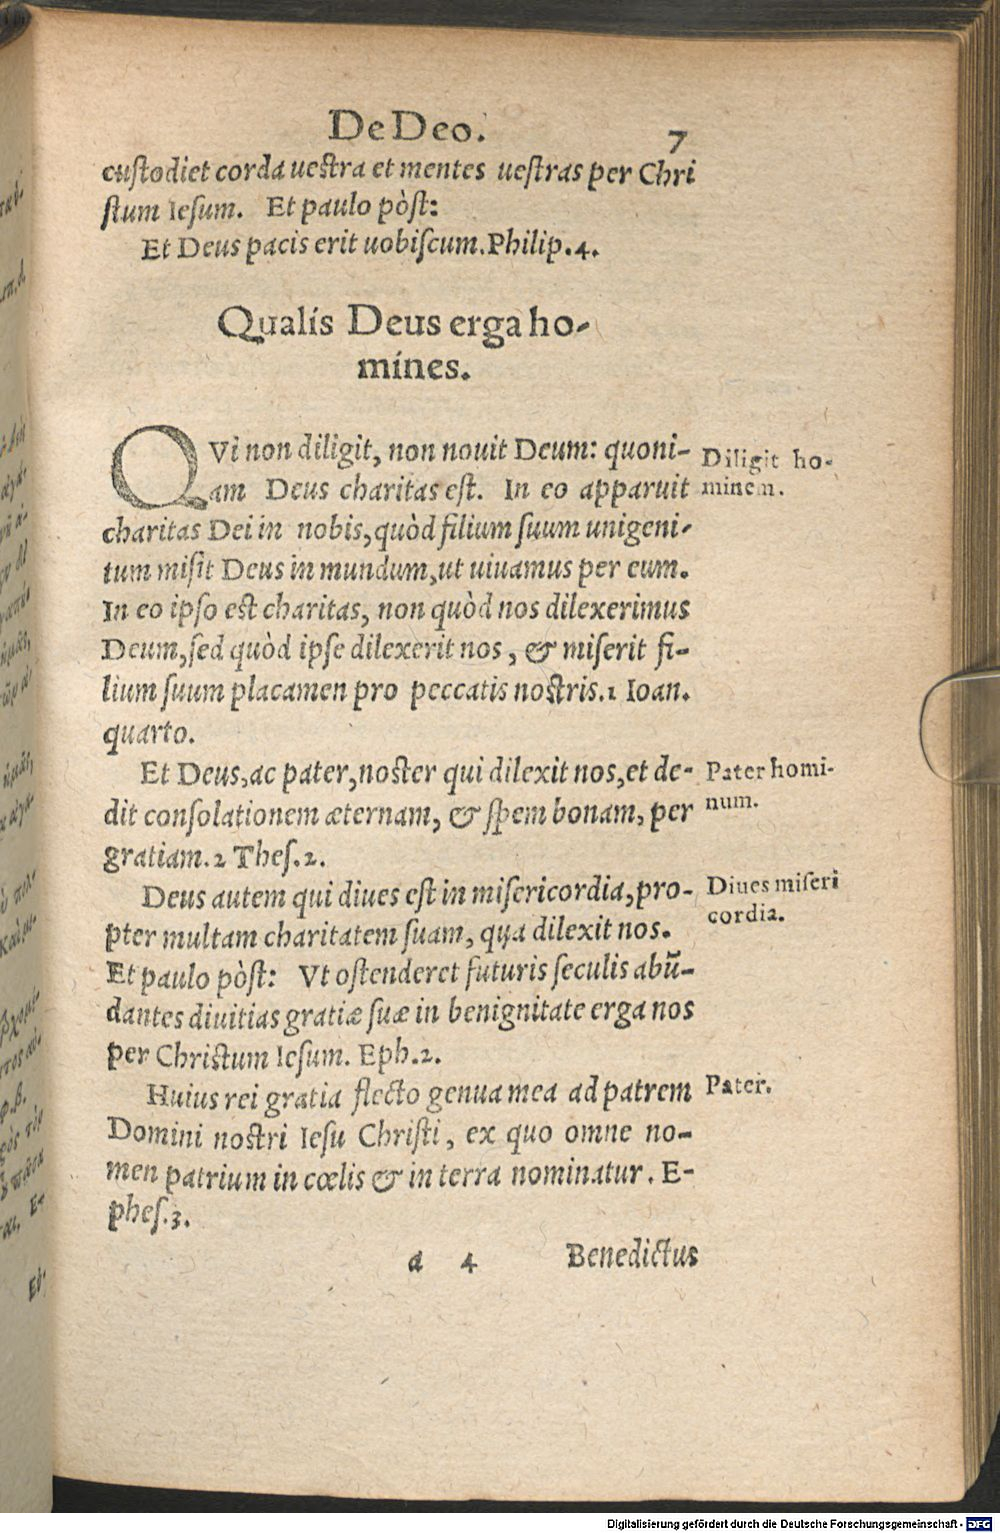 De Deo. 7
custodiet corda uestra et mentes uestras per Chri
stum Iesum. Et paulo pòst:
Et Deus pacis erit uobiscum. Philip. 4.
Qualis Deus erga ho-
mines.
QVi non diligit, non nouit Deum: quoni-
am Deus charitas est. In eo apparuit
Diligit ho-
minem.
charitas Dei in nobis, quòd filium suum unigeni-
tum misit Deus in mundum, ut uiuamus per eum.
In eo ipso est charitas, non quòd nos dilexerimus
Deum, sed quòd ipse dilexerit nos, & miserit fi-
lium suum placamen pro peccatis nostris. 1 Ioan.
quarto.
Et Deus, ac pater, noster qui dilexit nos, et de-
dit consolationem æternam, & spem bonam, per
gratiam. 2 Thes. 2.
Pater homi-
num.
Deus autem qui diues est in misericordia, pro-
pter multam charitatem suam, qua dilexit nos.
Diues miseri
cordia.
Et paulo pòst: Vt ostenderet futuris seculis abū-
dantes diuitias gratiæ suæ in benignitate erga nos
per Christum Iesum. Eph. 2.
Huius rei gratia flecto genua mea ad patrem
Pater.
Domini nostri Iesu Christi, ex quo omne no-
men patrium in cœlis & in terra nominatur. E-
phes. 3.
a 4 Benedictus
Digitalisierung gefördert durch die Deutsche Forschungsgemeinschaft - DFG